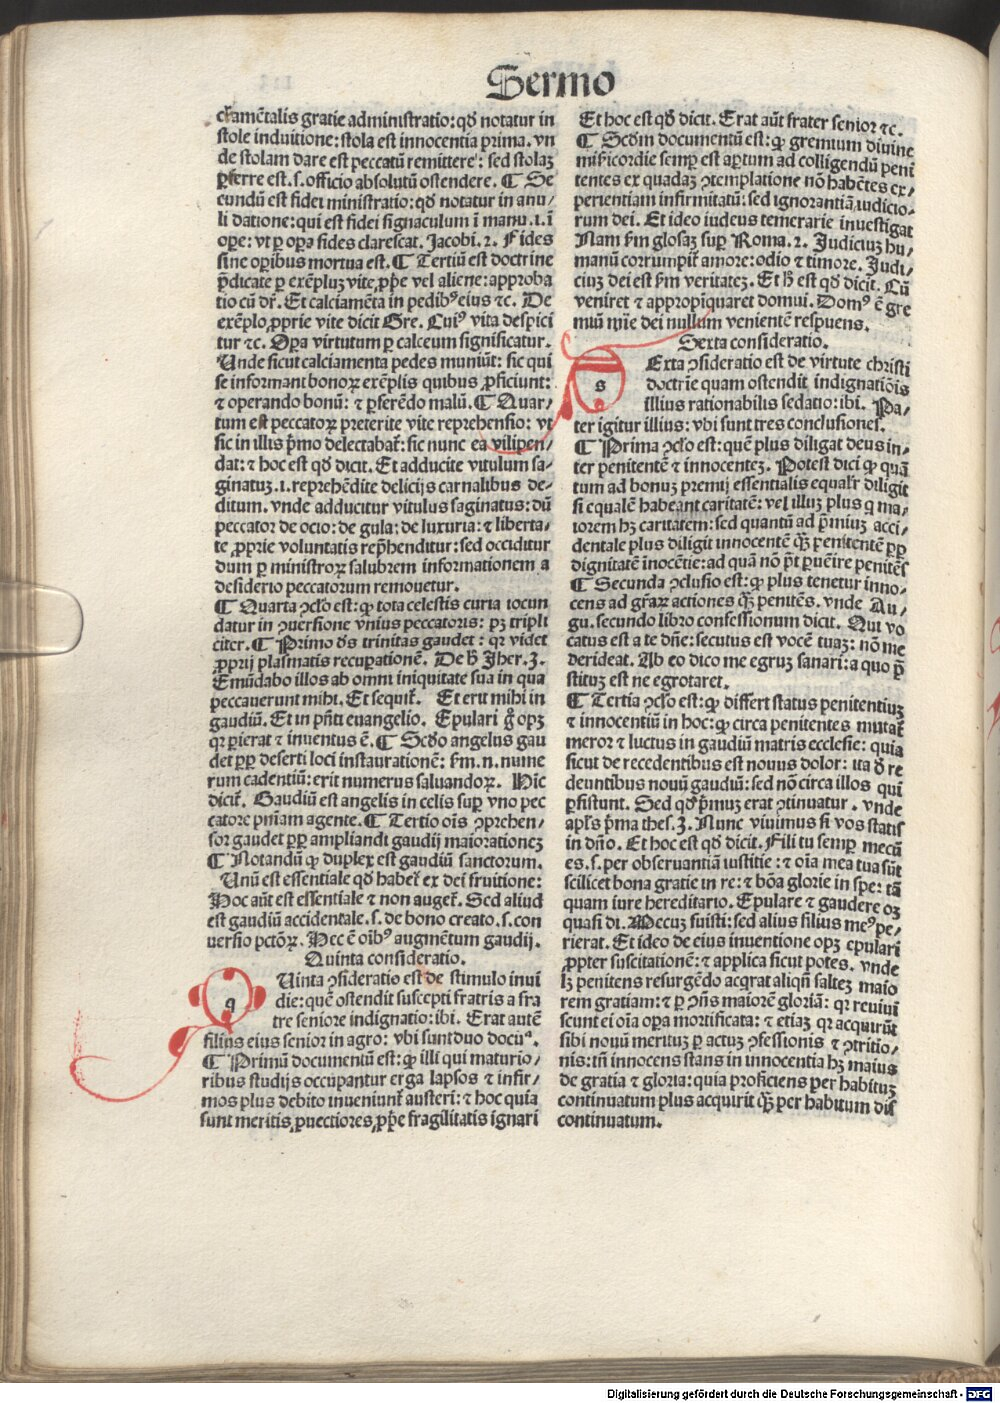 Sermo
cr̄amētalis gratie administratio: qđ notatur in
stole induitione: stola est innocentia prima. vn
de stolam dare est peccatū remittere: sed stolaꝫ
ꝓferre est .s. officio absolutū ostendere. ¶ Se
cundū est fidei ministratio: qđ notatur in anu/
li datione: qui est fidei signaculum ī manu .i. ī
oꝑe: vt ꝑ oꝑa fides clarescat. Jacobi. 2. Fides
sine oꝑibus mortua est. ¶ Tertiū est doctrine
p̄dicate ꝑ exēpluꝫ vite, ꝓpͥe vel aliene: approba
tio cū dr̄. Et calciamēta in pedibꝰ eius ⁊c. De
exēplo ꝓprie vite dicit Gre. Cuiꝰ vita despici
tur ⁊c. Oꝑa virtutum ꝑ calceum significatur.
Unde sicut calciamenta pedes muniūt: sic qui
se informant bonoꝝ exēplis quibus ꝓficiunt:
⁊ operando bonū: ⁊ ꝑferēdo malū. ¶ Quar/
tum est peccatoꝝ preterite vite reprehensio: vt
sic in illis pͥmo delectabat̄: sic nunc ea vilipen/
dat: ⁊ hoc est qđ dicit. Et adducite vitulum sa/
ginatuꝫ .i. reprehēdite delicijs carnalibus de/
ditum. vnde adducitur vitulus saginatus: dū
peccator de ocio: de gula: de luxuria: ⁊ liberta/
te ꝓprie voluntatis rep̄henditur: sed occiditur
dum ꝑ ministroꝝ salubrem informationem a
desiderio peccatorum remouetur.
¶ Quarta ↄclo est: ꝙ tota celestis curia iocun
datur in ↄuersione vnius peccatoris: pꝫ tripli
citer. ¶ Primo đs trinitas gaudet: qꝛ videt
ꝓprij plasmatis recuꝑationē. De hͦ Jher. 3.
Emūdabo illos ab omni iniquitate sua in qua
peccauerunt mihi. Et sequit̄. Et erit mihi in
gaudiū. Et in pn̄ti euangelio. Epulari gͦ opꝫ
qꝛ ꝑierat ⁊ inuentus ē. ¶ Scđo angelus gau
det ꝓpͥ deserti loci instaurationē: ẜm .n. nume
rum cadentiū: erit numerus saluandoꝝ. Hic
dicit̄. Gaudiū est angelis in celis suꝑ vno pec
catore pn̄iam agente. ¶ Tertio oīs ↄprehen/
sor gaudet ꝓpͥ ampliandi gaudij maiorationeꝫ
¶ Notandū ꝙ duplex est gaudiū sanctorum.
Unū est essentiale qđ habet̄ ex dei fruitione:
Hoc aūt est essentiale ⁊ non auget̄. Sed aliud
est gaudiū accidentale .s. de bono creato .s. con
uersio pctōꝝ. Hec ē oībꝰ augmētum gaudij.
Quinta consideratio.
q Uinta ↄsideratio est de stimulo inui
die: quē ostendit suscepti fratris a fra
tre seniore indignatio: ibi. Erat autē
filius eius senior in agro: vbi sunt duo docūᵃ.
¶ Primū documentū est: ꝙ illi qui maturio/
ribus studijs occupantur erga lapsos ⁊ infir/
mos plus debito inueniunt̄ austeri: ⁊ hoc quia
sunt meritis ꝓuectiores, ꝓpͥe fragilitatis ignari
Et hoc est qđ dicit. Erat aūt frater senior ⁊c.
¶ Scđm documentū est: ꝙ gremium diuine
miẜicordie semꝑ est aꝑtum ad colligendū peni
tentes ex quadaꝫ ↄtemplatione nō habētes ex/
perientiam infirmitatū: sed ignorantiā iudicio/
rum dei. Et ideo iudeus temerarie inuestigat
Nam ẜm glosaꝫ suꝑ Roma. 2. Judiciuꝫ hu/
manū corrumpit̄ amore: odio ⁊ timore. Judi/
ciuꝫ dei est ẜm veritateꝫ. Et hͦ est qđ dicit. Cū
veniret ⁊ appropīquaret domui. Domꝰ ē gre
miū mīe dei nullum venientē respuens.
Sexta consideratio.
s Exta ↄsideratio est de virtute christi
doctrīe quam ostendit indignatiōis
illius rationabilis sedatio: ibi. Pa/
ter igitur illius: vbi sunt tres conclusiones.
¶ Prima ↄclo est: quē plus diligat deus in/
ter penitentē ⁊ innocenteꝫ. Potest dici ꝙ quā
tum ad bonuꝫ premij essentialis equalr̄ diligit
si equalē habeant caritatē: vel illuꝫ plus q ma/
iorem hꝫ caritatem: sed quantū ad pͥmiuꝫ acci/
dentale plus diligit innocentē qꝫ̄ penitentē ꝓpͥ
dignitatē inocētie: ad quā nō pt̄ ꝑuēire penitēs
¶ Secunda ↄclusio est: ꝙ plus tenetur inno/
cens ad gr̄aꝝ actiones qꝫ̄ penitēs. vnde Au/
gu. secundo libro confessionum dicit. Qui vo
catus est a te dn̄e: secutus est vocē tuaꝫ: nō me
derideat. Ab eo dico me egruꝫ sanari: a quo p̄
stituꝫ est ne egrotaret.
¶ Tertia ↄclo est: ꝙ differt status penitentiuꝫ
⁊ innocentiū in hoc: ꝙ circa penitentes mutat̄
meror ⁊ luctus in gaudiū matris ecclesie: quia
sicut de recedentibus est nouus dolor: ita đ re
deuntibus nouū gaudiū: sed nō circa illos qui
ꝑsistunt. Sed qđ pͥmuꝫ erat ↄtinuatur. vnde
apl̄s pͥma thes. 3. Nunc viuimus si vos statis
in dn̄o. Et hoc est qđ dicit. Fili tu semꝑ mecū
es .s. per obseruantiā iustitie: ⁊ oīa mea tua sūt
scilicet bona gratie in re: ⁊ bōa glorie in spe: tā
quam iure hereditario. Epulare ⁊ gaudere oꝫ
quasi di. Mecuꝫ fuisti: sed alius filius meꝰ pe/
rierat. Et ideo de eius inuentione opꝫ epulari
ꝓpter suscitationē: ⁊ applica sicut potes. vnde
lꝫ penitens resurgēdo acq̄rat aliqn̄ salteꝫ maio
rem gratiam: ⁊ ꝑ ↄn̄s maiorē gloriā: qꝛ reuiui
scunt ei oīa oꝑa mortificata: ⁊ etiaꝫ qꝛ acquirūt
sibi nouū merituꝫ ꝑ actuꝫ ↄfessionis ⁊ ↄtritio/
nis: tn̄ innocens stans in innocentia hꝫ maius
de gratia ⁊ gloria: quia proficiens per habituꝫ
continuatum plus acquirit qꝫ̄ per habitum dis
continuatum.
Digitalisierung gefördert durch die Deutsche Forschungsgemeinschaft - DFG